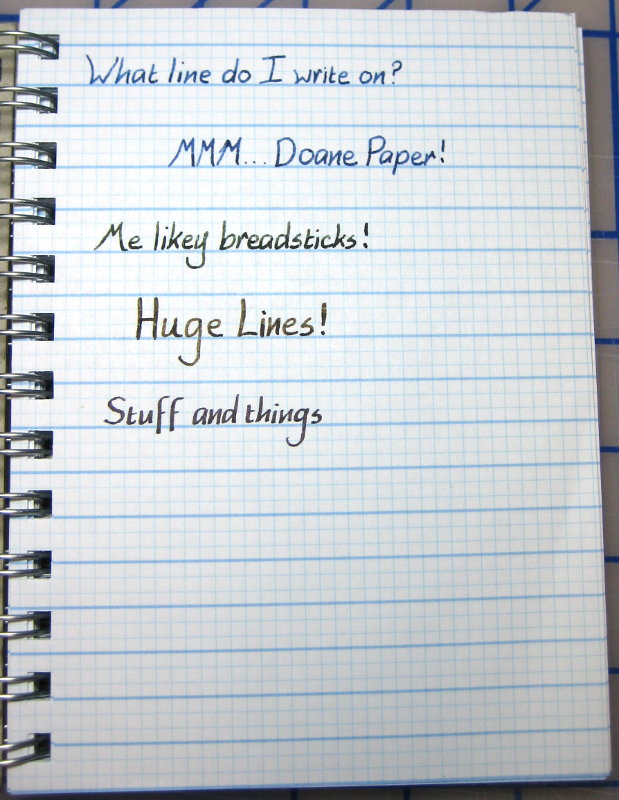 What line do I write on?
MMM... Doane Paper!
Me likey breadsticks!
Huge Lines!
Stuff and things